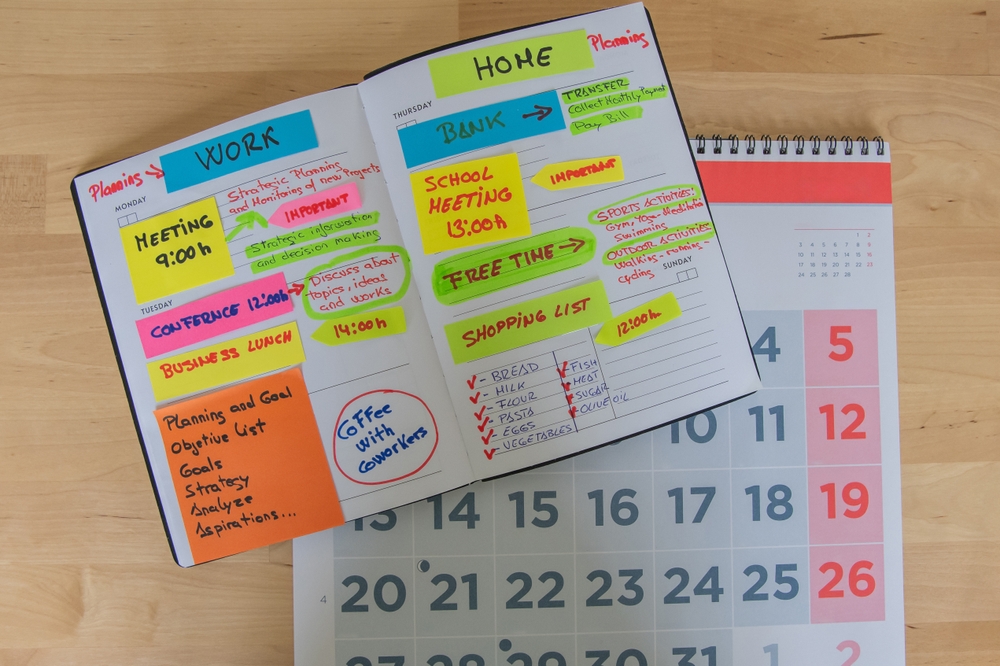 WORK
Planning
MONDAY
Strategic Planning
and Monitoring of new Projects
MEETING
9:00h
IMPORTANT
Strategic information
and decision making
TUESDAY
CONFERNCE 12:00h
Discuss about
topics, ideas
and works
14:00h
BUSINESS LUNCH
Planning and Goal
Objetive List
Goals
Strategy
Analyze
Aspirations...
Coffee
with
coworkers
HOME
Planning
THURSDAY
BANK
TRANSFER
Collect Monthly Payment
Pay Bill
SCHOOL
MEETING
13:00h
IMPORTANT
SPORTS ACTIVITIES:
Gym, Yoga-Meditatio
Swimming
OUTDOOR ACTIVITIES
Walking - running -
cycling
FREE TIME
SUNDAY
SHOPPING LIST
12:00h
- BREAD
- MILK
- FLOUR
- PASTA
- EGGS
- VEGETABLES
- FISH
- MEAT
- SUGAR
- OLIVE OIL
1 2
3 4 5 6 7 8 9
10 11 12 13 14 15 16
17 18 19 20 21 22 23
24 25 26 27 28
4 5
10 11 12
13 14 15 16 17 18 19
4 20 21 22 23 24 25 26
27 28 29 30 31 1 2